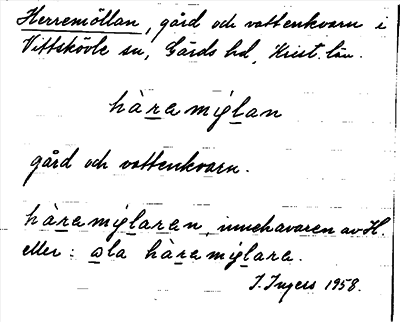 Herremöllan, gård och vattenkvarn i
Vittskövle sn, Gärds hd, Krist. län.
hàramiɡlan
gård och vattenkvarn.
hàramiɡlaren, innehavaren av H.
eller: ola hàramiɡlara.
I. Ingers 1958.